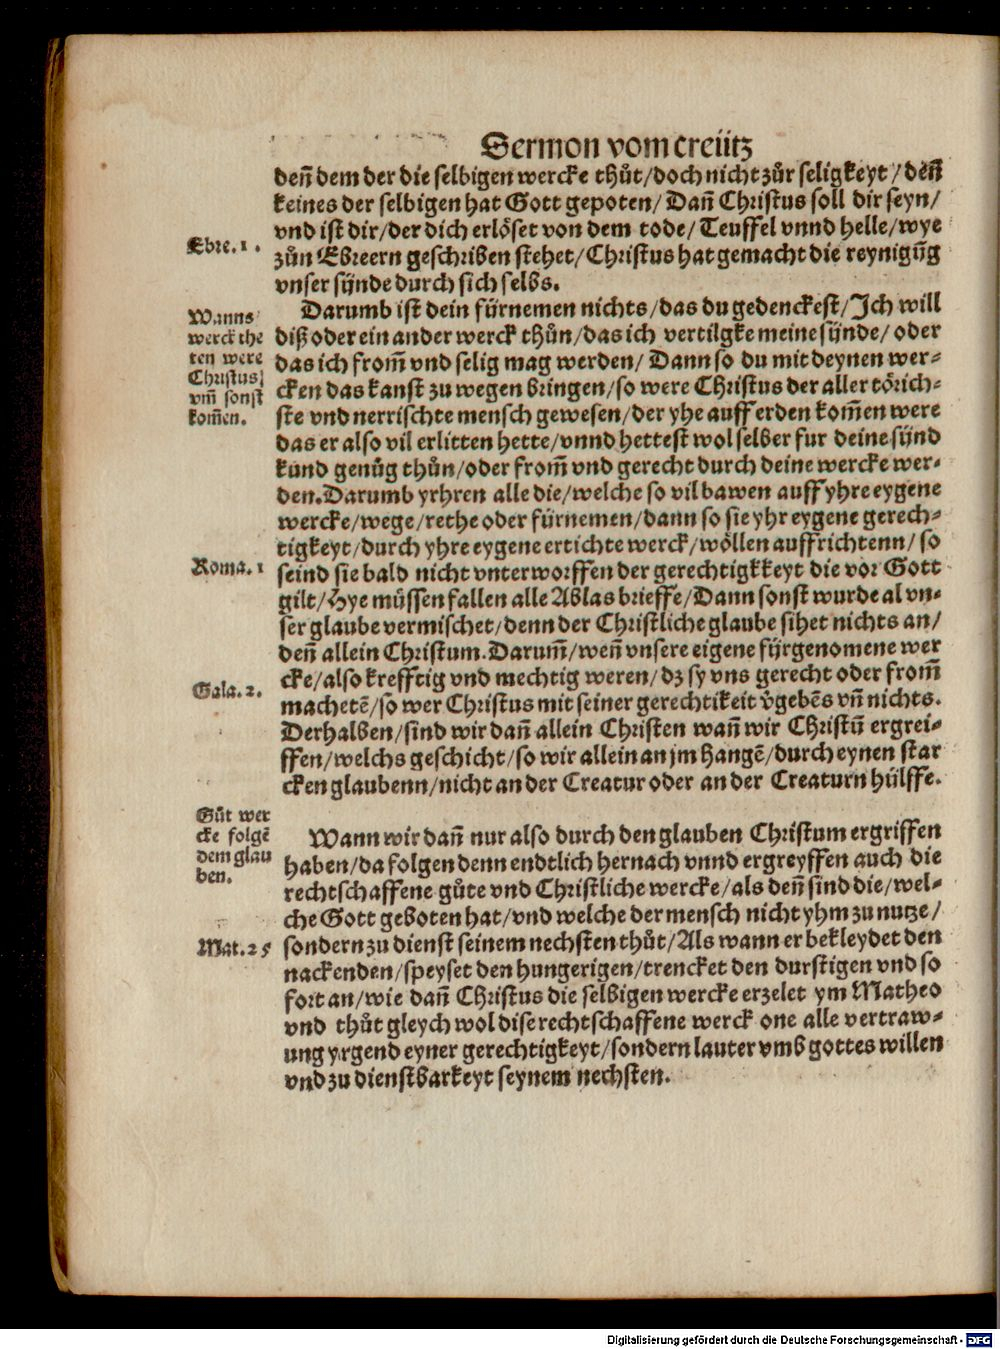 Sermon vom creütz
deñ dem der die selbigen wercke thůt/doch nicht zůr seligkeyt/deñ
keines der selbigen hat Gott gepoten/Dañ Christus soll dir seyn/
vnd ist dir/der dich erlöset von dem tode/Teuffel vnnd helle/wye
Ebre. 1.
zůn Ebreern geschriben stehet/Christus hat gemacht die reynigũg
vnser sünde durch sich selbs.
Darumb ist dein fürnemen nichts/das du gedenckest/Ich will
Wanns
werck the
ten were
Christus
vm̃ sonst
kom̃en.
diß oder ein ander werck thůn/das ich vertilgke meine sünde/oder
das ich from̃ vnd selig mag werden/Dann so du mit deynen wer-
cken das kanst zu wegen bringen/so were Christus der aller törich-
ste vnd nerrischte mensch gewesen/der yhe auff erden kom̃en were
das er also vil erlitten hette/vnnd hettest wol selber fur deine sünd
kund genůg thůn/oder from̃ vnd gerecht durch deine wercke wer-
den. Darumb yrhren alle die/welche so vil bawen auff yhre eygene
wercke/wege/rethe oder fürnemen/dann so sie yhr eygene gerech-
tigkeyt/durch yhre eygene ertichte werck/wöllen auffrichtenn/so
Roma. 1
seind sie bald nicht vnterworffen der gerechtigkkeyt die vor Gott
gilt/Hye müssen fallen alle Ablas brieffe/Dann sonst wurde al vn-
ser glaube vermischet/denn der Christliche glaube sihet nichts an/
deñ allein Christum. Darum̃/weñ vnsere eigene fürgenomene wer
Gala. 2.
cke/also krefftig vnd mechtig weren/dz sy vns gerecht oder from̃
machetẽ/so wer Christus mit seiner gerechtikeit v̈gebẽs vñ nichts.
Derhalben/sind wir dañ allein Christen wañ wir Christũ ergrei-
ffen/welchs geschicht/so wir allein an jm hangẽ/durch eynen star
cken glaubenn/nicht an der Creatur oder an der Creaturn hülffe.
Gůt wer
cke folgẽ
dem glau
ben.
Wann wir dañ nur also durch den glauben Christum ergriffen
haben/da folgen denn endtlich hernach vnnd ergreyffen auch die
rechtschaffene gůte vnd Christliche wercke/als deñ sind die/wel-
che Gott geboten hat/vnd welche der mensch nicht yhm zu nutze/
Mat. 25
sondern zu dienst seinem nechsten thůt/Als wann er bekleydet den
nackenden/speyset den hungerigen/trencket den durstigen vnd so
fort an/wie dañ Christus die selbigen wercke erzelet ym Matheo
vnd thůt gleych wol dise rechtschaffene werck one alle vertraw-
ung yrgend eyner gerechtigkeyt/sondern lauter vmb gottes willen
vnd zu dienstbarkeyt seynem nechsten.
Digitalisierung gefördert durch die Deutsche Forschungsgemeinschaft - DFG